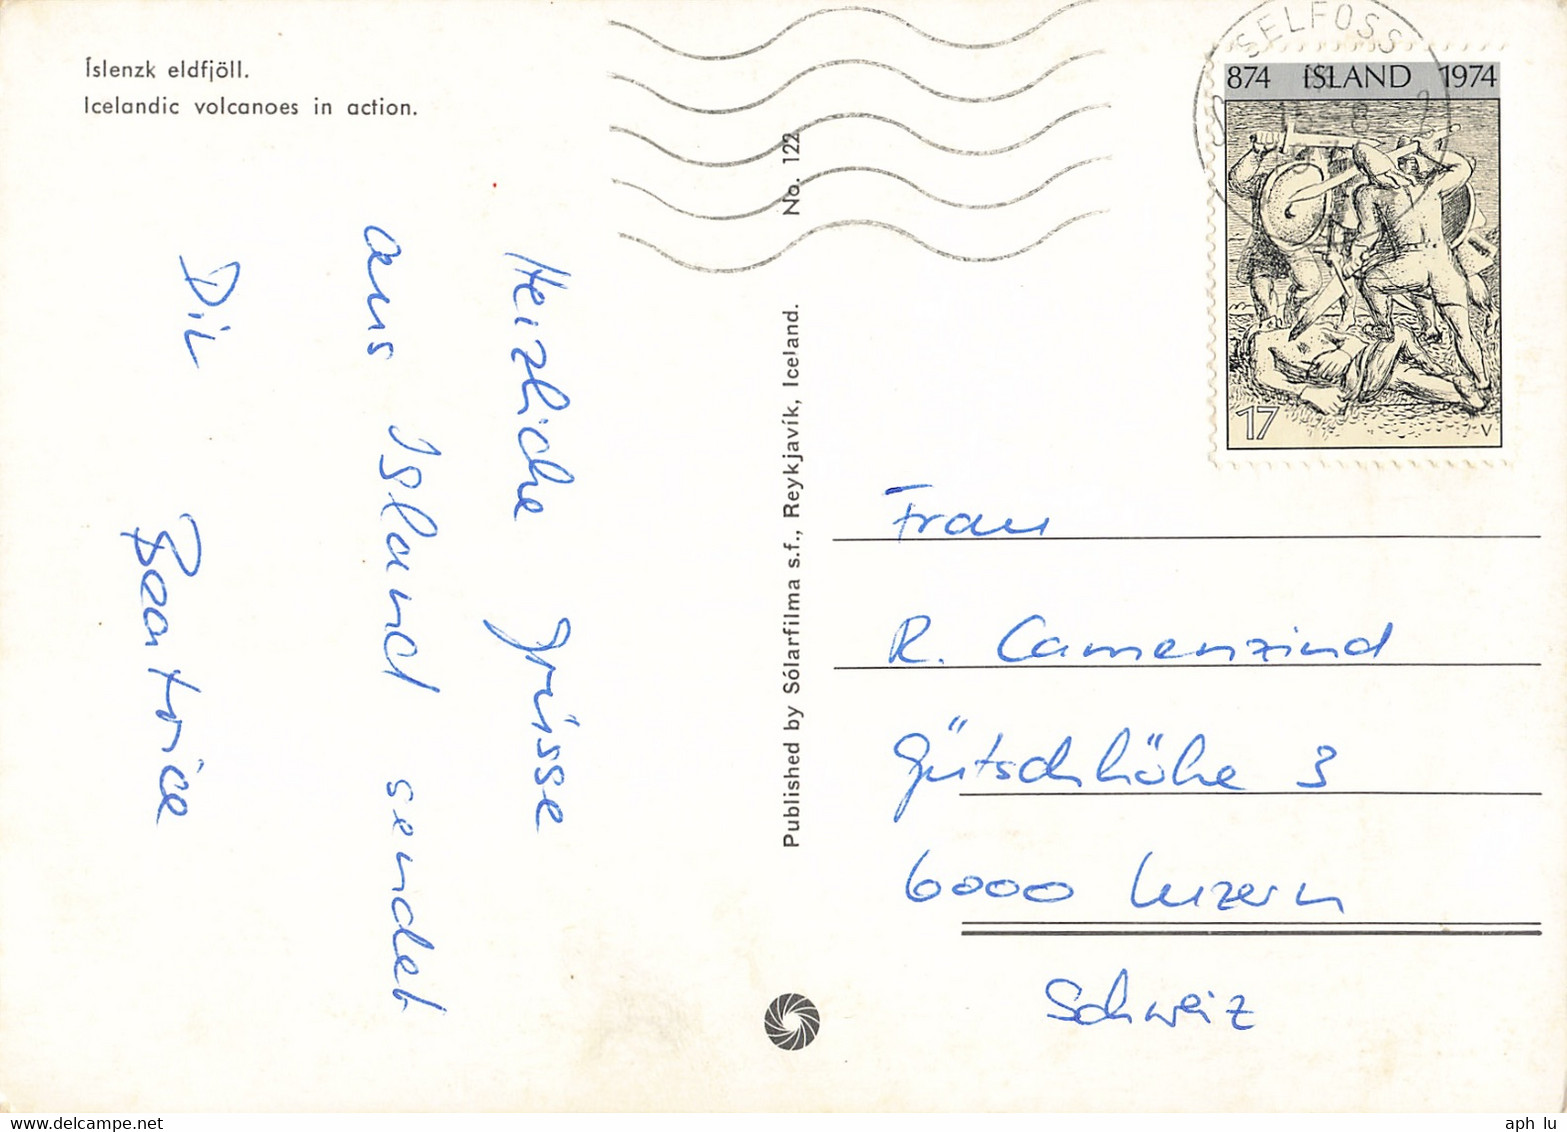 Íslenzk eldfjöll.
Icelandic volcanoes in action.
Herzliche Grüsse
aus Island sendet
Dir
Beatrice
No. 122
Published by Sólarfilma s.f., Reykjavík, Iceland.
SELFOSS
874 ISLAND 1974
17
V
Frau
R. Camenzind
Gütschhöhe 3
6000 Luzern
Schweiz
aph lu